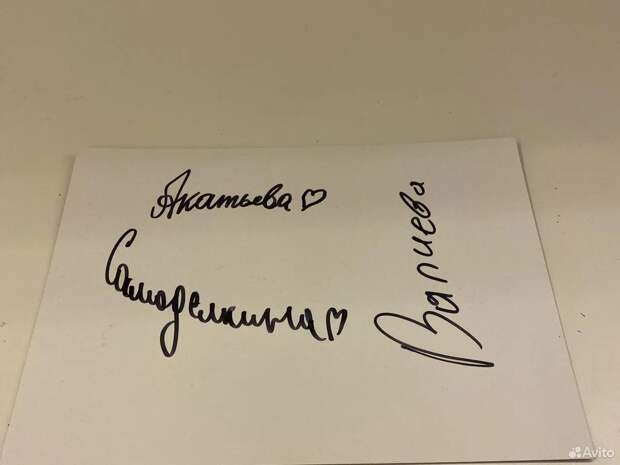 Акатьева
Самоделкина
Валиева
Avito